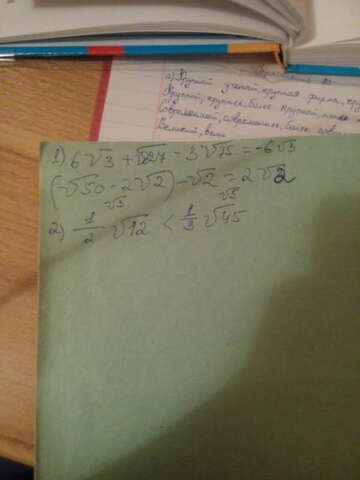 а) Крупный учёный, крупная фирма,
Крупной, крупнее, более крупной,
Современной, современнее, более
Великий,
1) 6√3 + √27 - 3√75 = -6√3
(√50 - 2√2) - √2 = 2√2
√3 √5
2) 1/2 √12 < 1/3 √45